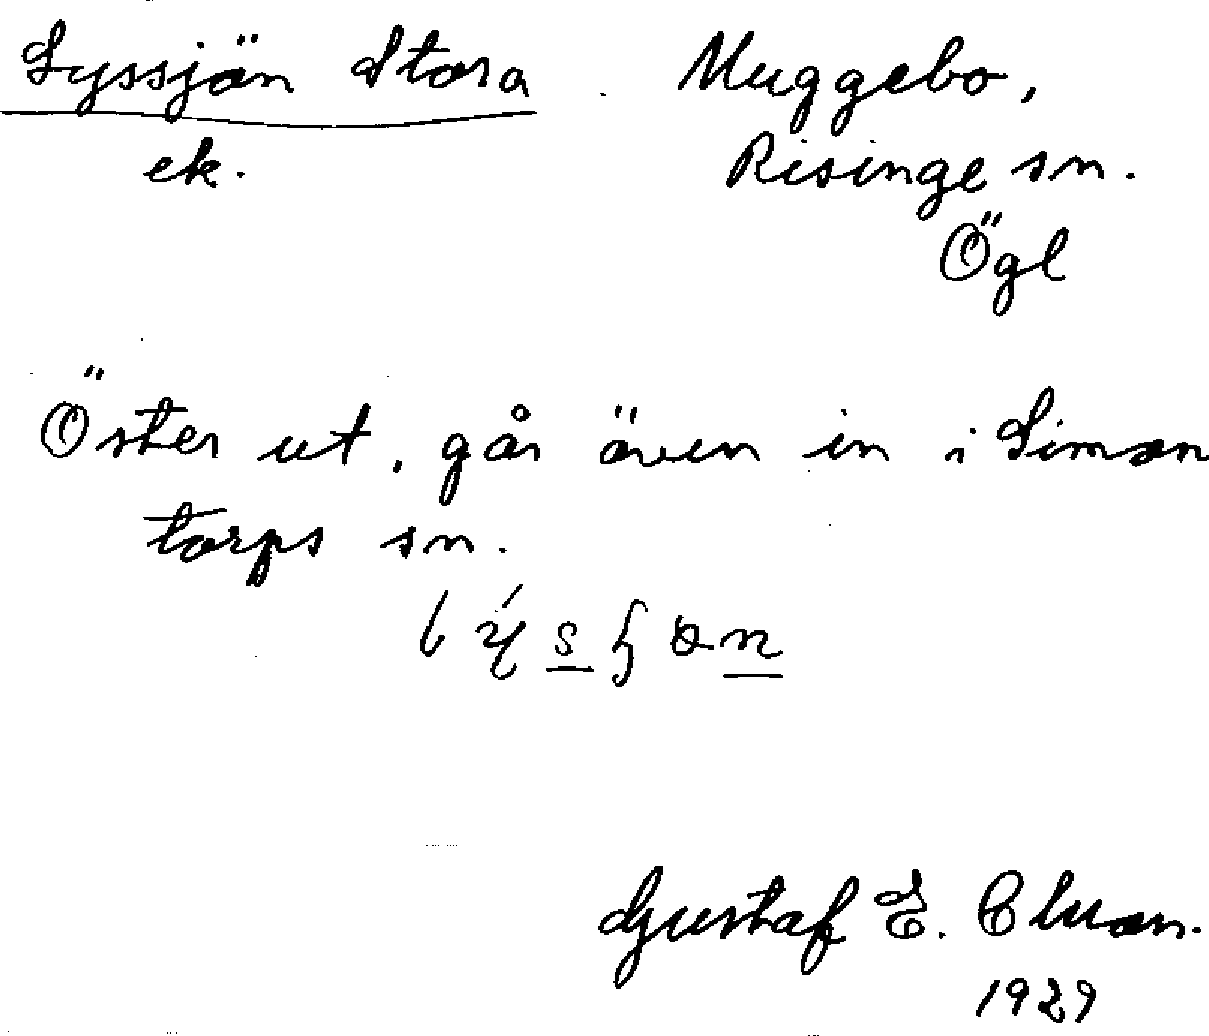 Lyssjön Stora
Muggebo,
ek.
Risinge sn.
Ögl
Öster ut, går även in i Simon
torps sn.
Gustaf E. Cluan.
1929